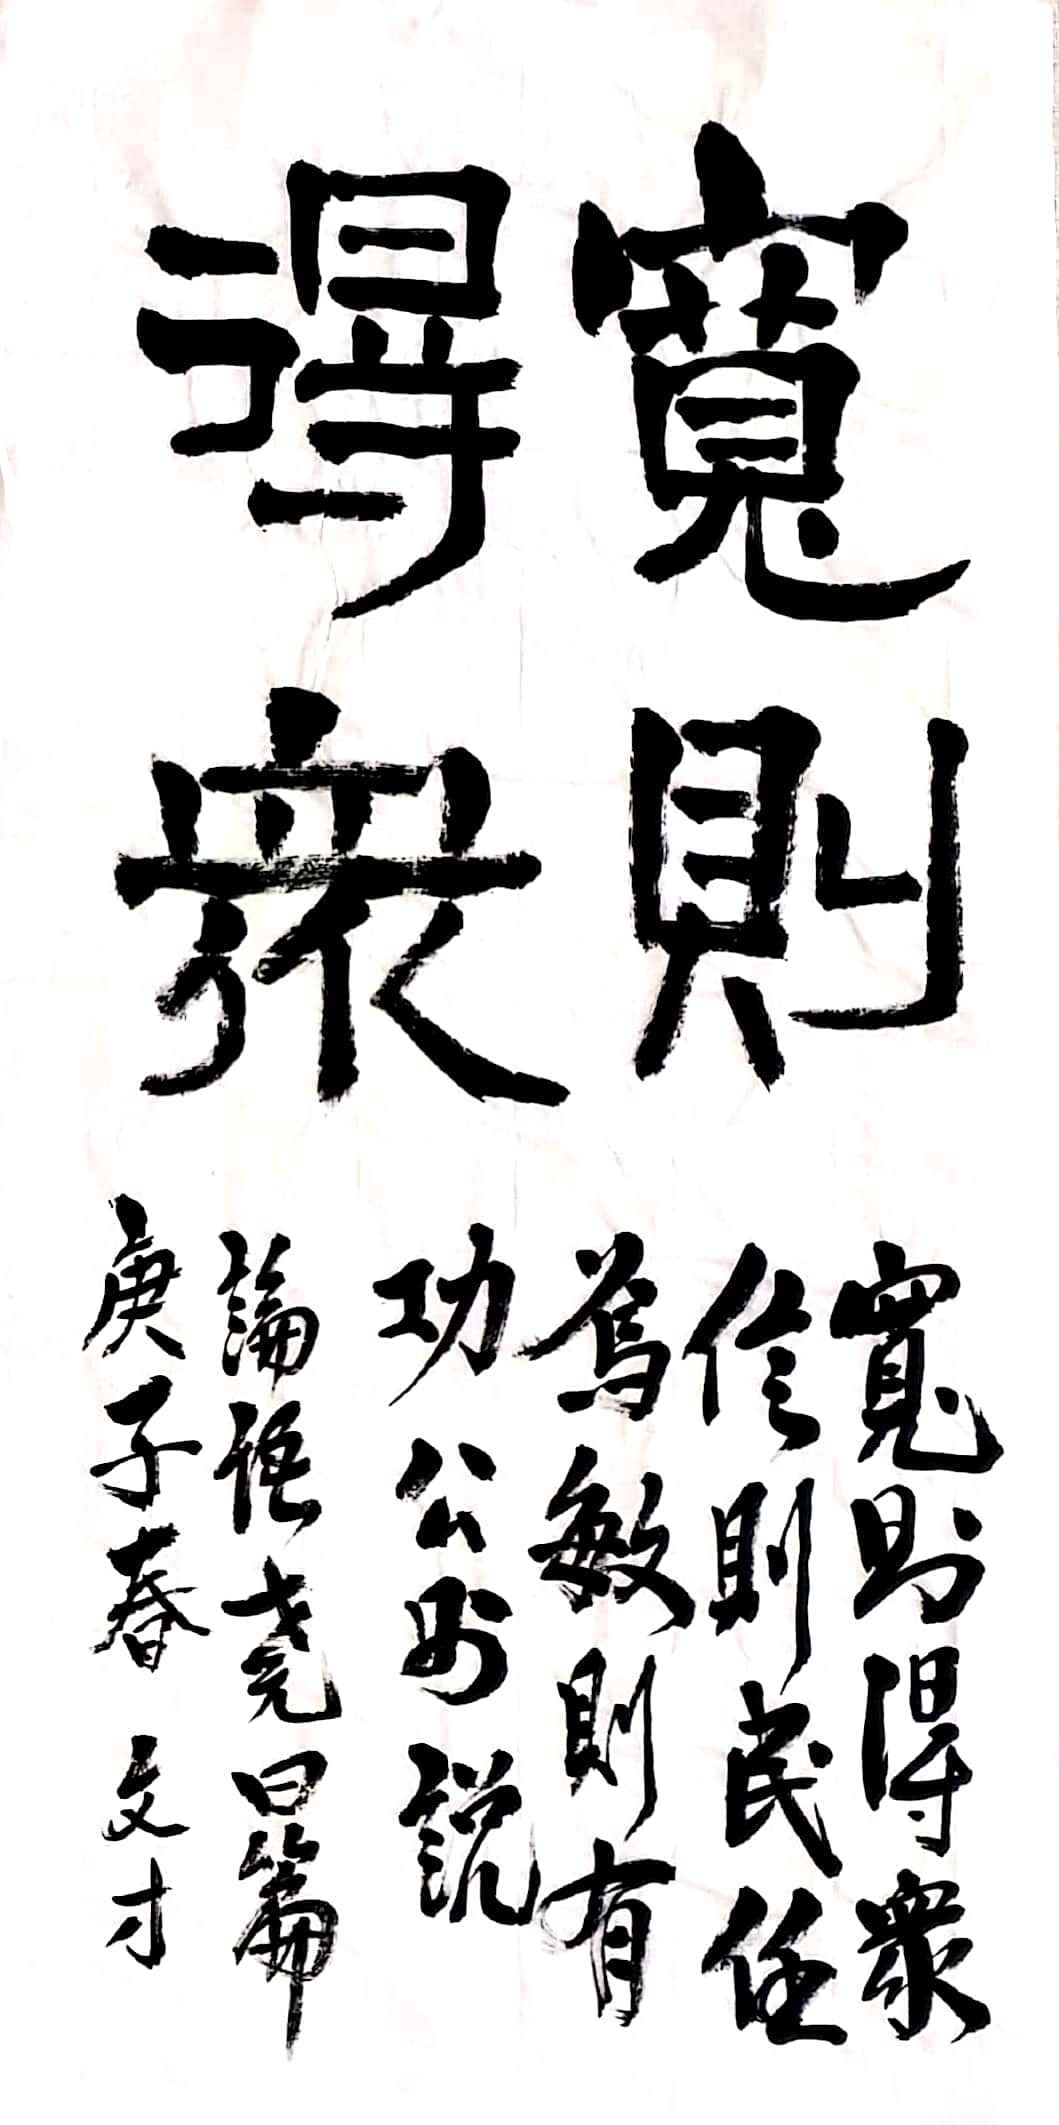 寬則
得衆
寬則得衆
信則民任
焉敏則有
功公則説
論語堯曰篇
庚子春 文才